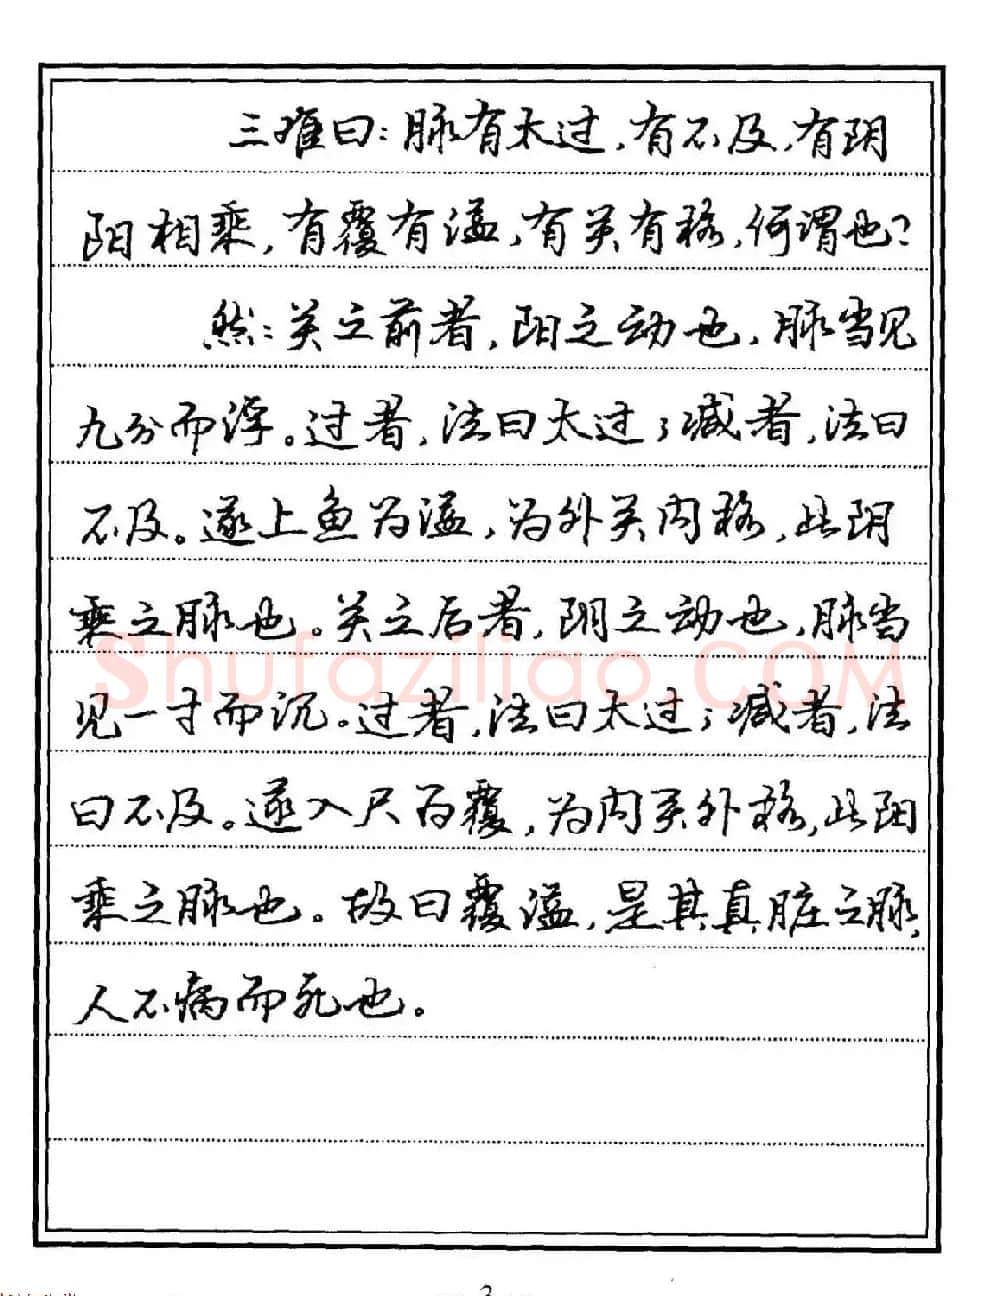 三难曰：脉有太过，有不及，有阴
阳相乘，有覆有溢，有关有格，何谓也？
然：关之前者，阳之动也，脉当见
九分而浮。过者，法曰太过；减者，法曰
不及。遂上鱼为溢，为外关内格，此阴
乘之脉也。关之后者，阴之动也，脉当
见一寸而沉。过者，法曰太过；减者，法
曰不及。遂入尺为覆，为内关外格，此阳
乘之脉也。故曰覆溢，是其真脏之脉，
人不病而死也。
Shufaziliao.COM